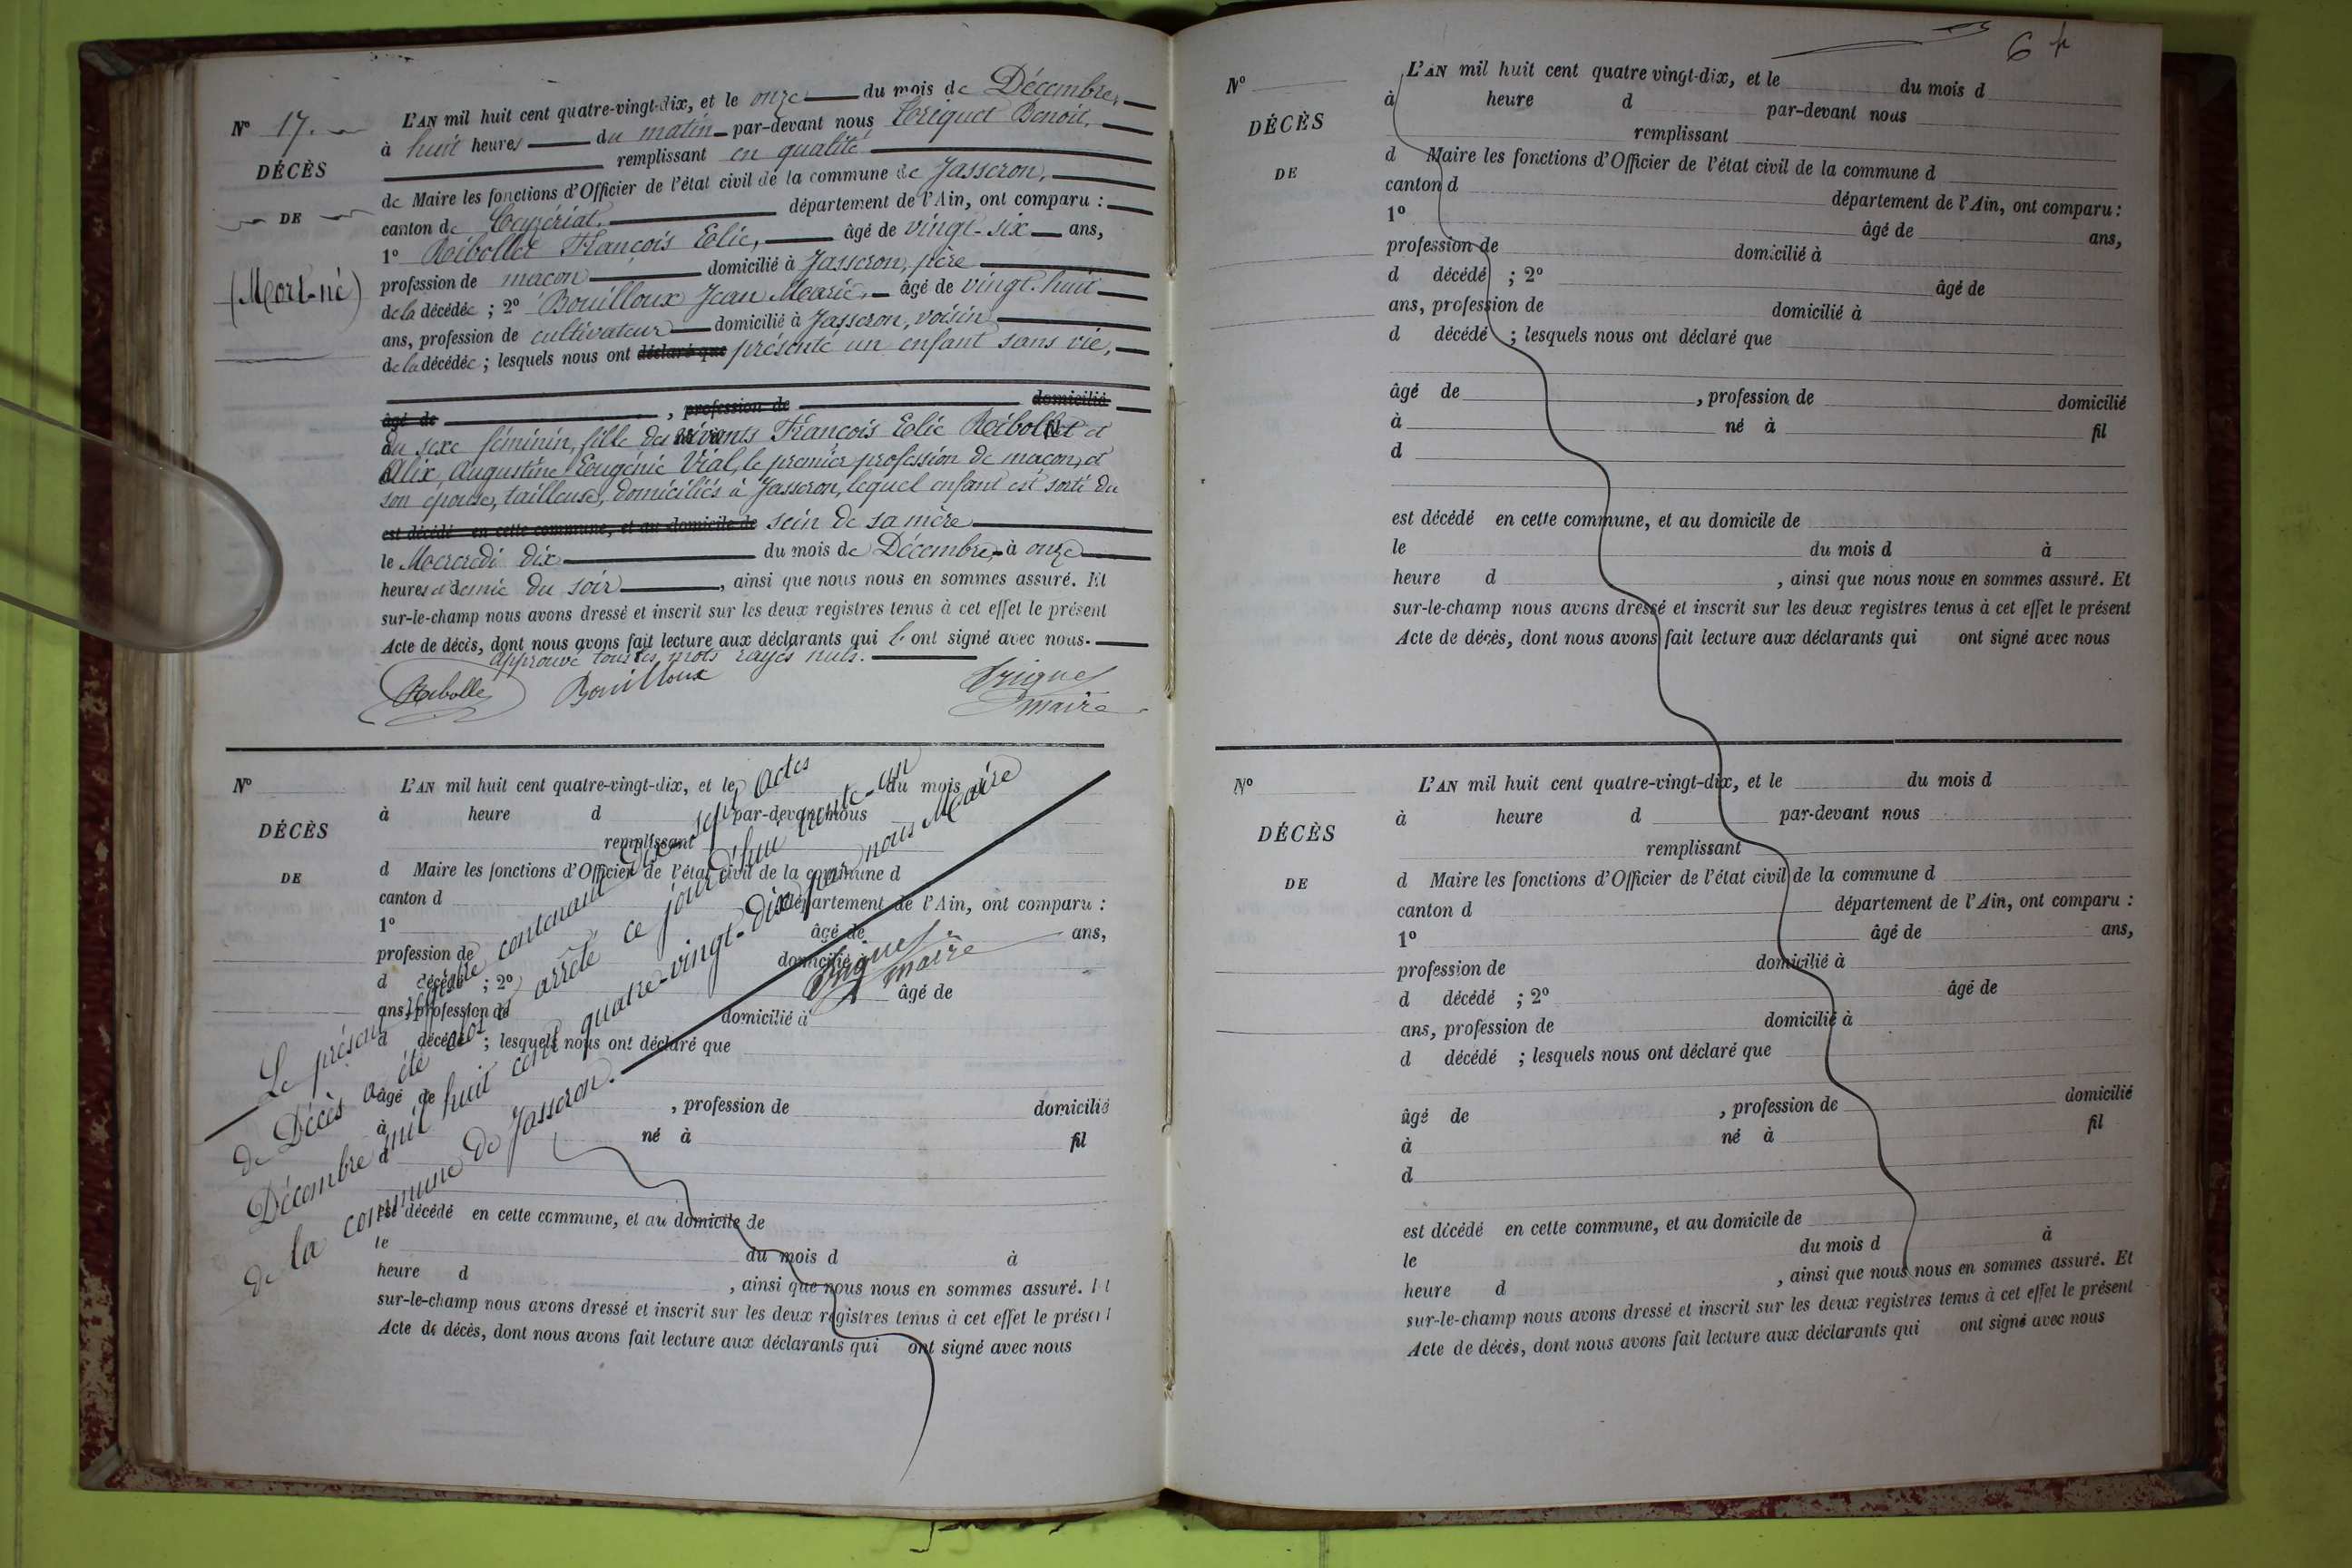 N° 17.
DÉCÈS
DE
(Mort-né)
L'AN mil huit cent quatre-vingt-dix, et le onze du mois de Décembre,
à huit heures du matin par-devant nous Triquet Benoit,
remplissant en qualité
de Maire les fonctions d'Officier de l'état civil de la commune de Jasseron,
canton de Ceyzériat, département de l'Ain, ont comparu :
1° Rebollet François Elie, âgé de vingt-six ans,
profession de maçon domicilié à Jasseron, père
de la décédée ; 2° Bouilloux Jean Marie, âgé de vingt-huit
ans, profession de cultivateur domicilié à Jasseron, voisin
de la décédée ; lesquels nous ont déclaré que présenté un enfant sans vie,
âgé de , profession de domicilié
du sexe féminin, fille des vivants François Elie Rebollet et
Alix, Augustine Eugénie Vial, le premier profession de maçon, et
son épouse, tailleuse, domiciliés à Jasseron, lequel enfant est sorti du
est décédé en cette commune, et au domicile de sein de sa mère
le Mercredi dix du mois de Décembre, à onze
heures et demie du soir , ainsi que nous nous en sommes assuré. Et
sur-le-champ nous avons dressé et inscrit sur les deux registres tenus à cet effet le présent
Acte de décès, dont nous avons fait lecture aux déclarants qui l' ont signé avec nous.
Approuvé tous les mots rayés nuls.
Rebollet Bouilloux Triquet
maire
N°
DÉCÈS
DE
L'AN mil huit cent quatre-vingt-dix, et le du mois
à heure d par-devant nous
remplissant
d Maire les fonctions d'Officier de l'état civil de la commune d
canton d département de l'Ain, ont comparu :
1° âgé de ans,
profession de domicilié à
d décédé ; 2° âgé de
ans, profession de domicilié à
d décédé ; lesquels nous ont déclaré que
âgé de , profession de domicilié
à né à fil
d
est décédé en cette commune, et au domicile de
le du mois d à
heure d , ainsi que nous nous en sommes assuré. Et
sur-le-champ nous avons dressé et inscrit sur les deux registres tenus à cet effet le présent
Acte de décès, dont nous avons fait lecture aux déclarants qui ont signé avec nous
Le présent registre contenant dix-sept actes
de Décès a été clos et arrêté ce jourd'hui trente-un
Décembre mil huit cent quatre-vingt-dix par nous Maire
de la commune de Jasseron.
Triquet
maire
6
N°
DÉCÈS
DE
L'AN mil huit cent quatre vingt-dix, et le du mois d
à heure d par-devant nous
remplissant
d Maire les fonctions d'Officier de l'état civil de la commune d
canton d département de l'Ain, ont comparu :
1° âgé de ans,
profession de domicilié à
d décédé ; 2° âgé de
ans, profession de domicilié à
d décédé ; lesquels nous ont déclaré que
âgé de , profession de domicilié
à né à fil
d
est décédé en cette commune, et au domicile de
le du mois d à
heure d , ainsi que nous nous en sommes assuré. Et
sur-le-champ nous avons dressé et inscrit sur les deux registres tenus à cet effet le présent
Acte de décès, dont nous avons fait lecture aux déclarants qui ont signé avec nous
N°
DÉCÈS
DE
L'AN mil huit cent quatre-vingt-dix, et le du mois d
à heure d par-devant nous
remplissant
d Maire les fonctions d'Officier de l'état civil de la commune d
canton d département de l'Ain, ont comparu :
1° âgé de ans,
profession de domicilié à
d décédé ; 2° âgé de
ans, profession de domicilié à
d décédé ; lesquels nous ont déclaré que
âgé de , profession de domicilié
à né à fil
d
est décédé en cette commune, et au domicile de
le du mois d à
heure d , ainsi que nous nous en sommes assuré. Et
sur-le-champ nous avons dressé et inscrit sur les deux registres tenus à cet effet le présent
Acte de décès, dont nous avons fait lecture aux déclarants qui ont signé avec nous